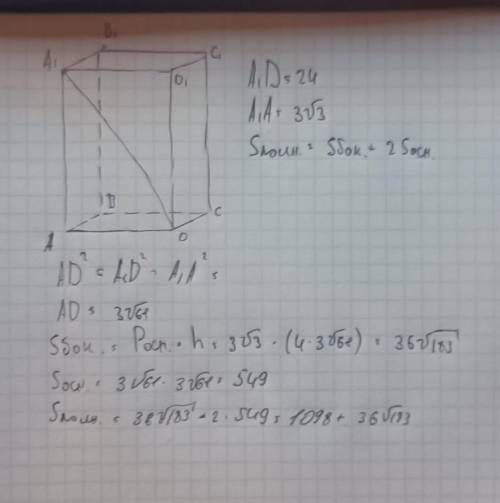 B₁
A₁ C₁
D₁
A₁D = 24
A₁A = 3√3
Sполн. = Sбок. + 2Sосн.
B
C
A D
AD² = A₁D² - A₁A² =
AD = 3√61
Sбок. = Pосн. · h = 3√3 · (4·3√61) = 36√183
Sосн = 3√61 · 3√61 = 549
Sполн. = 36√183 + 2·549 = 1098 + 36√183